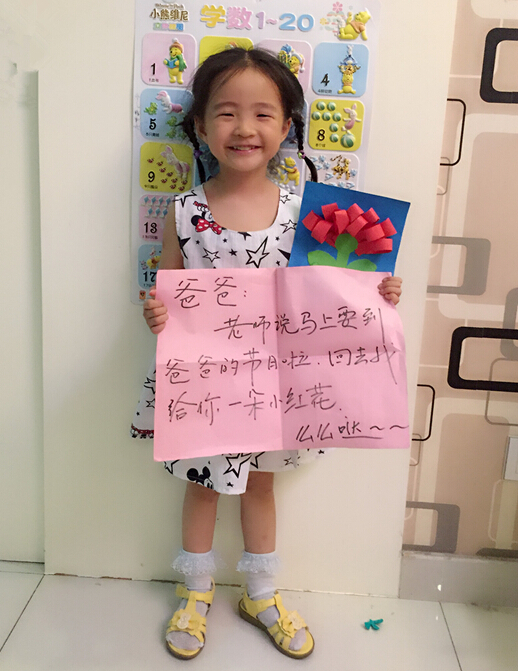 小熊维尼
学数1~20
1
4
5
8
9
13
17
爸爸:
老师说马上要到
爸爸的节日啦.回去我
给你一朵小红花.
么么哒~~